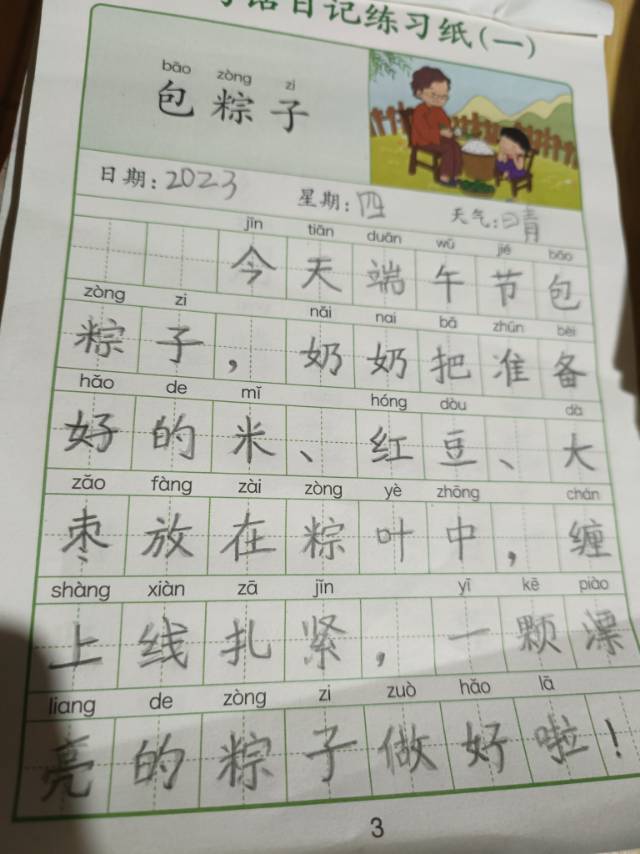 日记练习纸(一)
bāo zòng zi
包粽子
日期:2023 星期:四 天气:晴
jīn tiān duān wǔ jié bāo
今天端午节包
zòng zi nǎi nai bǎ zhǔn bèi
粽子,奶奶把准备
hǎo de mǐ hóng dòu dà
好的米、红豆、大
zǎo fàng zài zòng yè zhōng chán
枣放在粽叶中,缠
shàng xiàn zā jǐn yī kē piào
上线扎紧,一颗漂
liang de zòng zi zuò hǎo lā
亮的粽子做好啦!
3